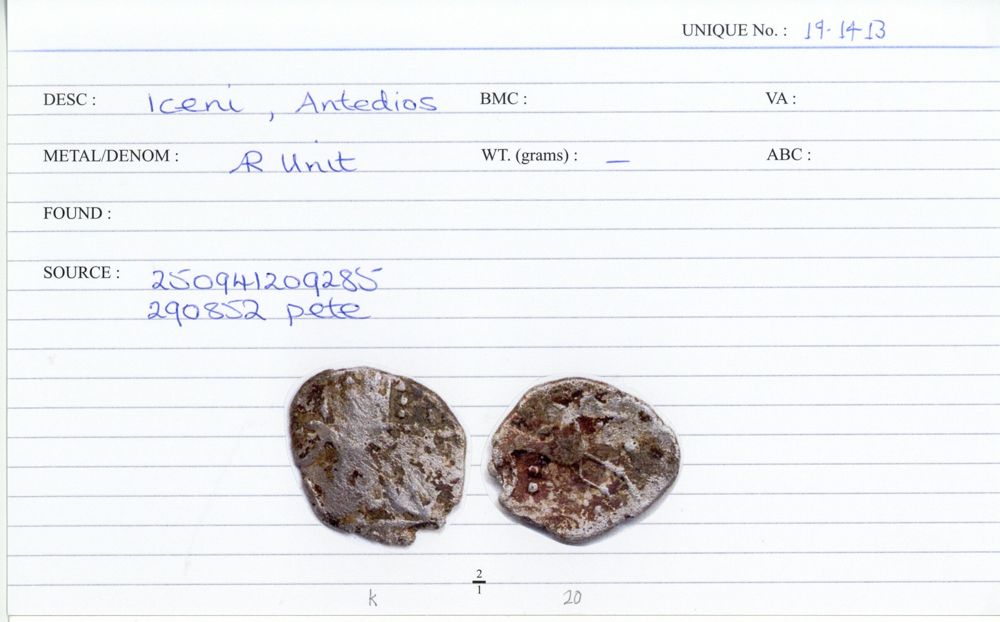 UNIQUE No. : 19-14-13
DESC : Iceni, Antedios BMC : VA :
METAL/DENOM : AR Unit WT. (grams) : — ABC :
FOUND :
SOURCE : 250941209285
290852 pete
2
1
k 20